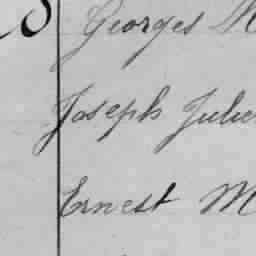 Georges M
Joseph Julie
Ernest M